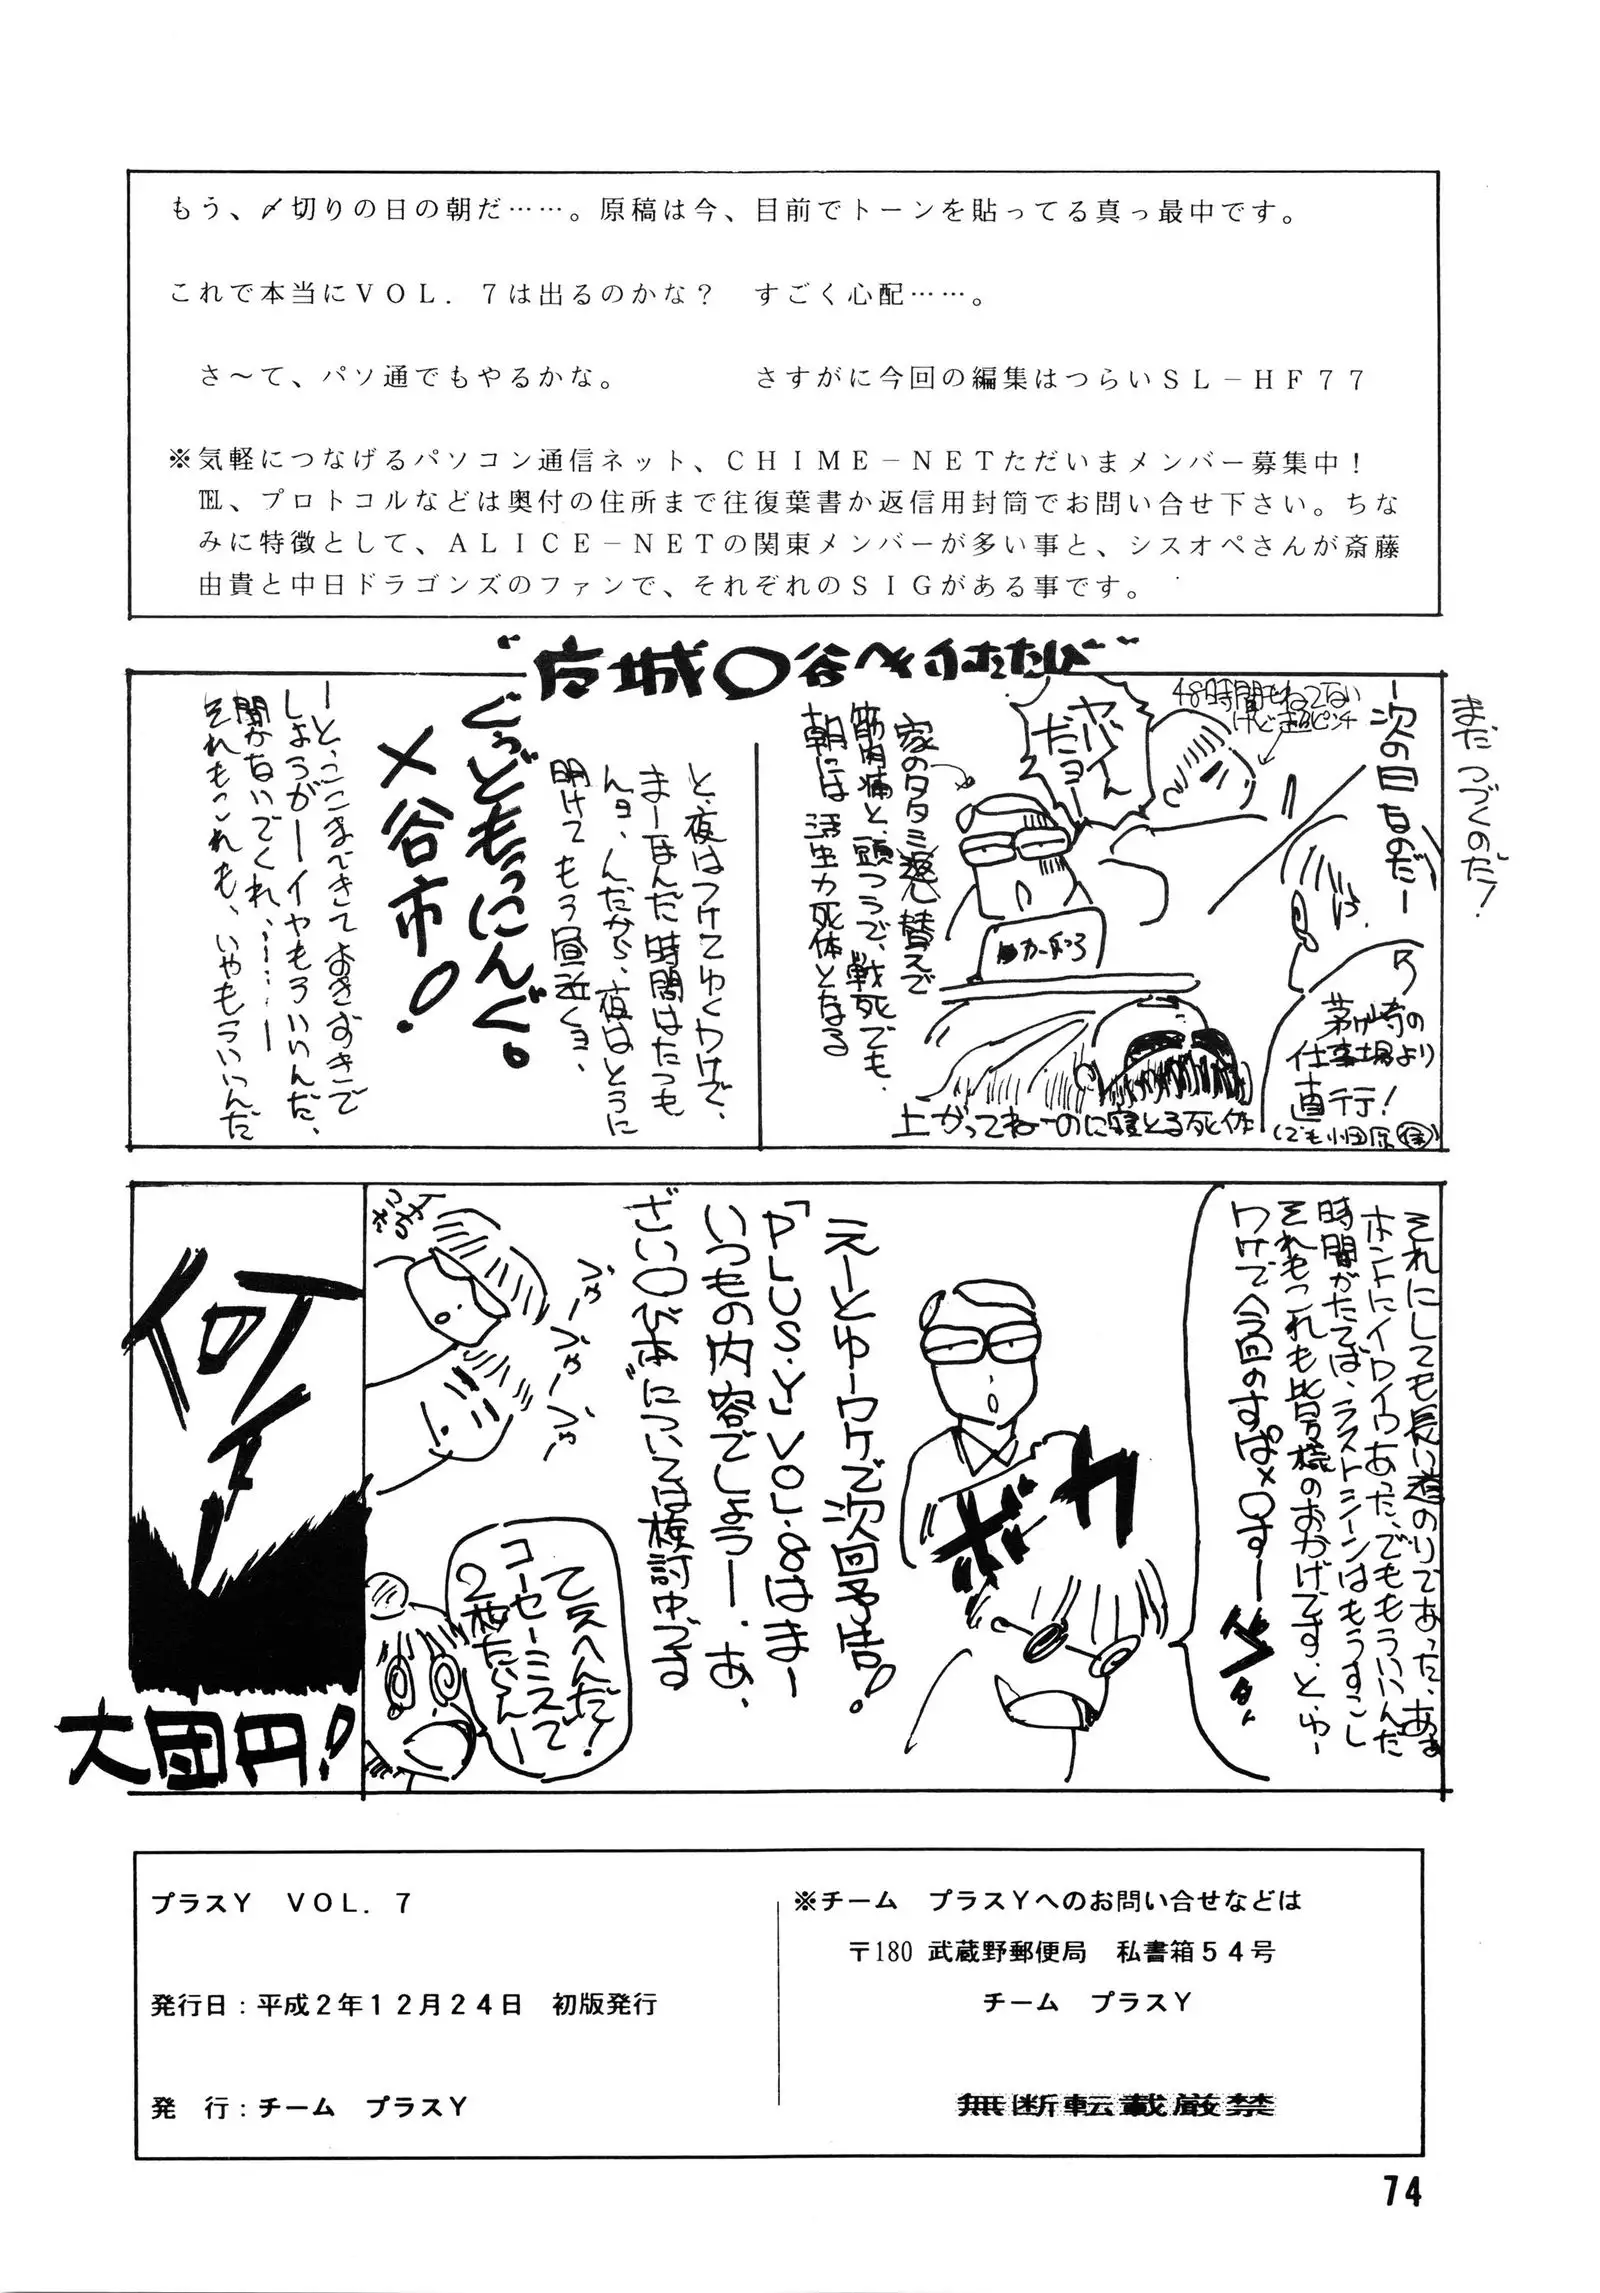 もう、〆切りの日の朝だ……。原稿は今、目前でトーンを貼ってる真っ最中です。
これで本当にＶＯＬ．７は出るのかな？　すごく心配……。
さ～て、パソ通でもやるかな。　さすがに今回の編集はつらいＳＬ－ＨＦ７７
※気軽につなげるパソコン通信ネット、ＣＨＩＭＥ－ＮＥＴただいまメンバー募集中！
℡、プロトコルなどは奥付の住所まで往復葉書か返信用封筒でお問い合せ下さい。ちな
みに特徴として、ＡＬＩＣＥ－ＮＥＴの関東メンバーが多い事と、シスオペさんが斎藤
由貴と中日ドラゴンズのファンで、それぞれのＳＩＧがある事です。
まだつづくのだ！
ー次の日なのだー
48時間もねてない
けど超ピンチ
ヤバイん
だヨー
茅ヶ崎の
仕事場より
直行！
家のタタミ替えで
筋肉痛と、頭つうで、戦死でも、
朝には活生力死体となる
上がってねーのに寝とる死体
と、夜はつけてゆくワけで、
まーほんだ時間はたつも
んョ、んだから、夜はとうに
明けてもう昼近くョ、
ぐっどもっにんぐ。
メ谷市！
ーと、ここまできておきずきで
しょうがーイヤもういいんだ、
聞かないでくれ、……ー
それもこれも、いやもういいんだ
それにしても長い道のりであった、ああ
ホントにイロイロあった、でももういいんだ
時間がたてば、ラストシーンはもうすこし
それもこれも皆様のおかげです、と、ゆー
ワけで今回のすぱ×〇すー
ボカ
えーとゆーワケで次回予告！
「PLUS・Y」VOL・8はまー
いつもの内容でしょうー、あ、
ざい〇び本については検討中でる
ぶゃーぶゃーぶ
ぶゃーぶゃーぶ
てえへんだ！
コーセーミスで
2枚たんねー
何ィー
大団円！
プラスＹ　ＶＯＬ．７
発行日：平成２年１２月２４日　初版発行
発　行：チーム　プラスＹ
※チーム　プラスＹへのお問い合せなどは
〒180 武蔵野郵便局　私書箱５４号
チーム　プラスＹ
無断転載厳禁
74